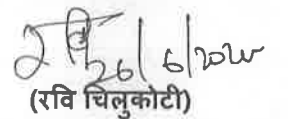 रवि 26/6/2020
(रवि चिलुकोटी)